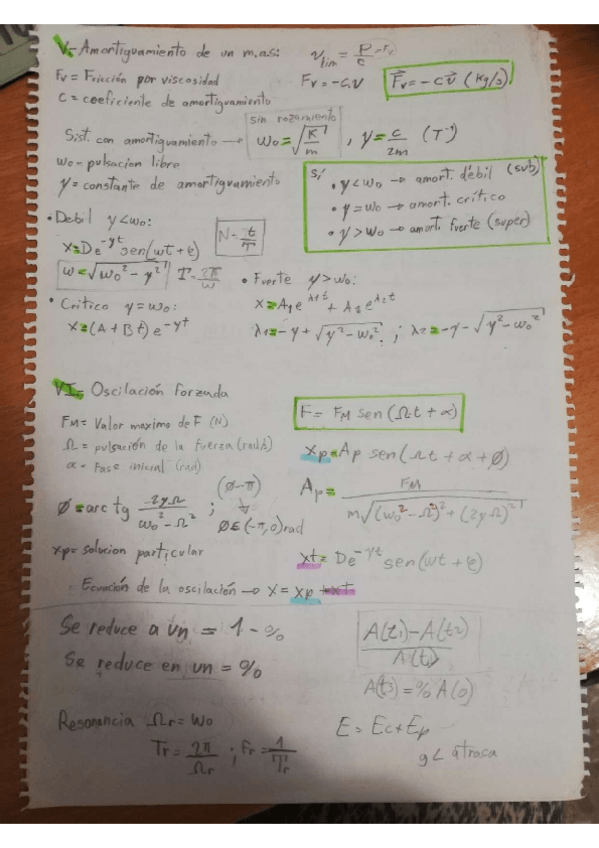 V- Amortiguamiento de un m.a.s: v lim = P-Fv / c
Fv = Fricción por viscosidad Fv = -c.v F⃗v = -c v⃗ (Kg/s)
C = coeficiente de amortiguamiento
sin rozamiento
Sist. con amortiguamiento → ω0 = √(K/m) , γ = c/2m (T⁻¹)
ω0 = pulsación libre
γ = constante de amortiguamiento
Si
• γ < ω0 → amort. débil (sub)
• γ = ω0 → amort. crítico
• γ > ω0 → amort. fuerte (super)
• Debil γ < ω0: N = t/T
x = De^-γt sen(ωt + φ)
ω = √(ω0² - γ²) T = 2π/ω
• Critico γ = ω0:
x = (A + Bt) e^-γt
• Fuerte γ > ω0:
x = A1 e^λ1t + A2 e^λ2t
λ1 = -γ + √(γ² - ω0²) ; λ2 = -γ - √(γ² - ω0²)
VI- Oscilación forzada
FM = Valor maximo de F (N) F = FM sen(Ωt + α)
Ω = pulsación de la fuerza (rad/s)
α = Fase inicial (rad)
xp = Ap sen(Ωt + α + Ø)
Ø = arc tg 2γΩ / ω0² - Ω² ; (Ø-π) ↓ Ø ∈ (-π, 0) rad
Ap = FM / m√((ω0² - Ω²)² + (2γΩ)²)
xp = solucion particular xt = De^-γt sen(ωt + φ)
Ecuación de la oscilación → x = xp + xt
Se reduce a un = 1 - %
Se reduce en un = %
A(t1) - A(t2) / A(t1)
A(t) = % A(0)
Resonancia Ωr = ω0 E = Ec + Ep
Tr = 2π/Ωr ; Fr = 1/Tr
g < atrasa